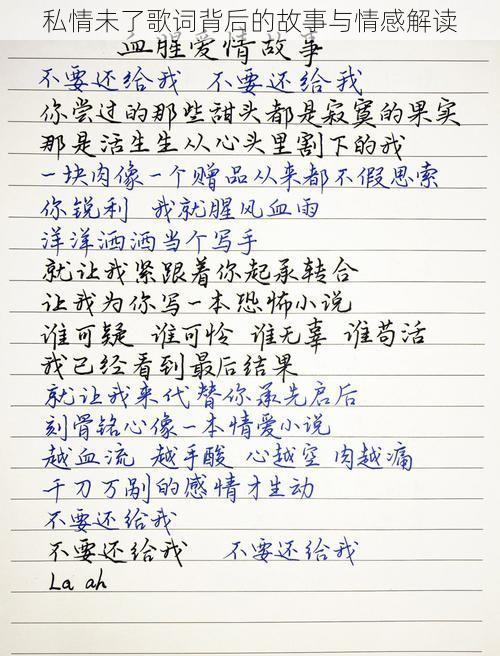 私情未了歌词背后的故事与情感解读
血腥爱情故事
不要还给我 不要还给我
你尝过的那些甜头都是寂寞的果实
那是活生生从心头里割下的我
一块肉像一个赠品从来都不假思索
你锐利 我就腥风血雨
洋洋洒洒当个写手
就让我紧跟着你起承转合
让我为你写一本恐怖小说
谁可疑 谁可怜 谁无辜 谁苟活
我已经看到最后结果
就让我来代替你承先启后
刻骨铭心像一本情爱小说
越血流 越手酸 心越空 肉越痛
千刀万剐的感情才生动
不要还给我
不要还给我 不要还给我
La ah